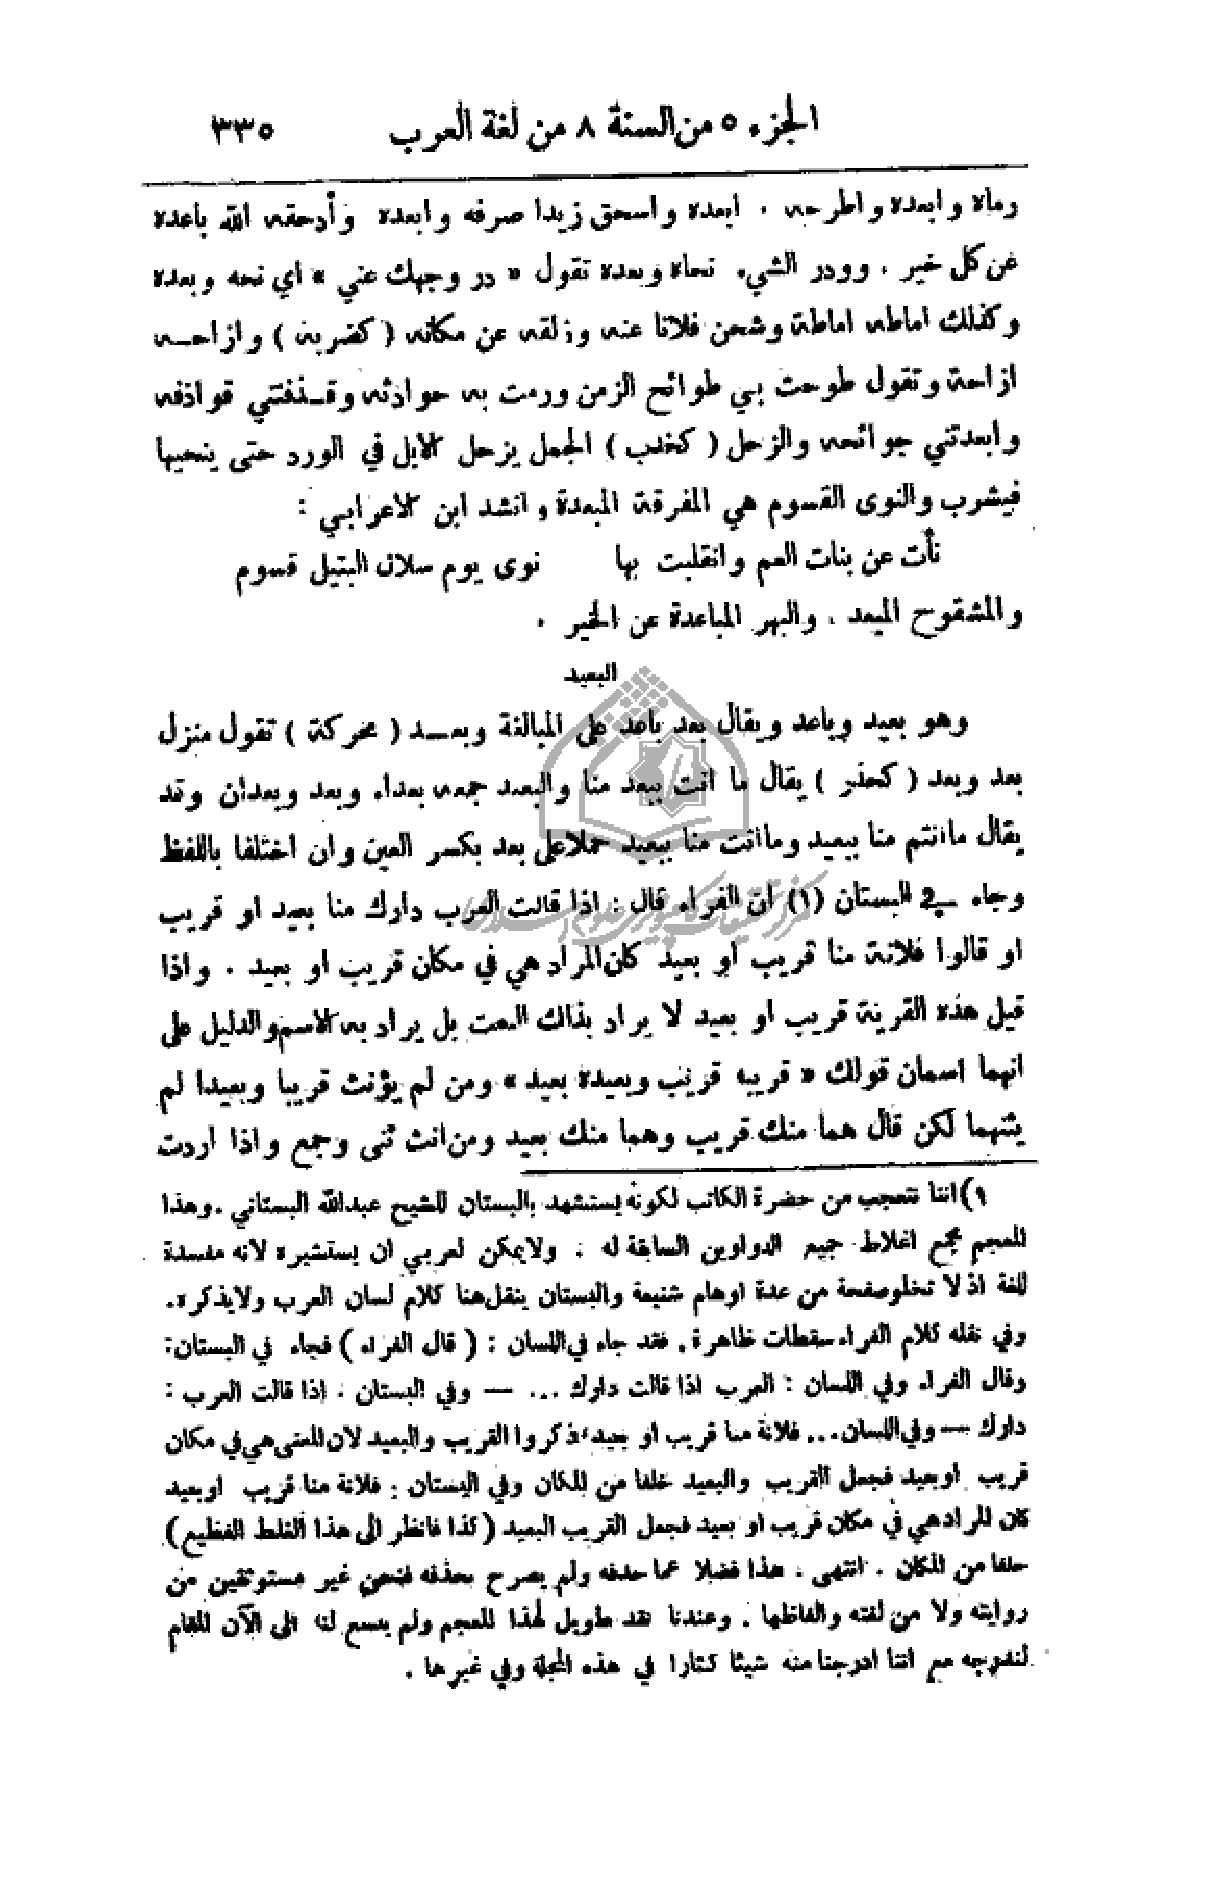 الجزء ٥ من السنة ٨ من لغة العرب ٣٣٥
رماه وابعده واطرحه . ابعده واسحق زيدا صرفه وابعده وأدحقه الله باعده
عن كل خير . وودر الشيء نحاه وبعده تقول « در وجهك عني » اي نحه وبعده
وكذلك اماطه اماطة وشحن فلانا عنه وزلقه عن مكانه ( كضربه ) وازاحـه
ازاحة وتقول طوحت بي طوائح الزمن ورمت به حوادثه وقـذفتني قواذفه
وابعدتني جوائحه والزحل ( كخدب ) الجمل يزحل الابل في الورد حتى ينحيها
فيشرب والنوى القسوم هي المفرقة المبعدة وانشد ابن الاعرابي :
نأت عن بنات العم وانقلبت بها نوى يوم سلان البتيل قسوم
والمشقوح المبعد . والبهر المباعدة عن الخير .
البعيد
وهو بعيد وباعد ويقال بعد باعد على المبالغة وبعـد ( محركة ) تقول منزل
بعد وبعد ( كحذر ) يقال ما انت ببعد منا والبعيد جمعه بعداء وبعد وبعدان وقد
يقال ما انتم منا ببعيد وما انت منا ببعيد حملا على بعد بكسر العين وان اختلفا باللفظ
وجاء في البستان (١) ان الفراء قال : اذا قالت العرب دارك منا بعيد او قريب
او قالوا فلانة منا قريب او بعيد كان المراد هي في مكان قريب او بعيد . واذا
قيل هذه القرينة قريب او بعيد لا يراد بذاك النعت بل يراد به الاسم والدليل على
انهما اسمان قولك « قريبه قريب وبعيدة بعيد » ومن لم يؤنث قريبا وبعيدا لم
يثنهما لكن قال هما منك قريب وهما منك بعيد ومن انث ثنى وجمع واذا اردت
١) اننا نتعجب من حضرة الكاتب لكونه يستشهد بالبستان للشيخ عبدالله البستاني . وهذا
المعجم مجمع اغلاط جميع الدواوين السابقة له . ولا يمكن لعربي ان يستشيره لانه مفسدة
للغة اذ لا تخلو صفحة من عدة اوهام شنيعة والبستان ينقل هنا كلام لسان العرب ولا يذكره.
وفي نقله كلام الفراء سقطات ظاهرة . فقد جاء في اللسان : ( قال الفراء ) فجاء في البستان :
وقال الفراء وفي اللسان : العرب اذا قالت دارك ... — وفي البستان . اذا قالت العرب :
دارك — وفي اللسان ... فلانة منا قريب او بعيد ذكروا القريب والبعيد لان المعنى هي في مكان
قريب او بعيد فجعل القريب والبعيد خلفا من المكان وفي البستان : فلانة منا قريب او بعيد
كان المراد هي في مكان قريب او بعيد فجعل القريب البعيد ( كذا فانظر الى هذا الغلط الفظيع )
خلفا من المكان . انتهى . هذا فضلا عما حذفه ولم يصرح بحذفه فنحن غير مستوثقين من
روايته ولا من لغته والفاظها . وعندنا نقد طويل لهذا المعجم ولم يسمع لنا الى الآن المقام
لندرجه مع اننا ادرجنا منه شيئا كثارا في هذه المجلة وفي غيرها .